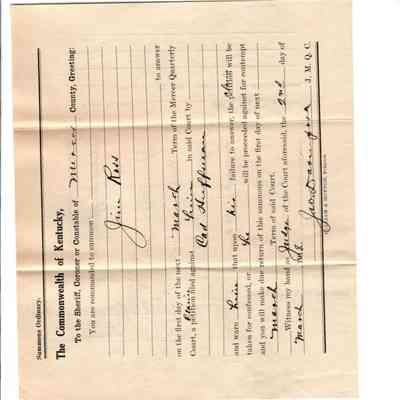 Summons Ordinary.
The Commonwealth of Kentucky,
To the Sheriff, Coroner or Constable of Mercer County, Greeting:
You are commanded to summon
Jim Ross
to answer
on the first day of the next March Term of the Mercer Quarterly
Court, a petition filed against him in said Court by
Cad Huffman
and warn him that upon his failure to answer, the petition will be
taken for confessed, or he will be proceeded against for contempt
and you will make due return of this summons on the first day of next
March Term of said Court.
Witness my hand as Judge of the Court aforesaid, the 2nd day of
March
J. M. Q. C.